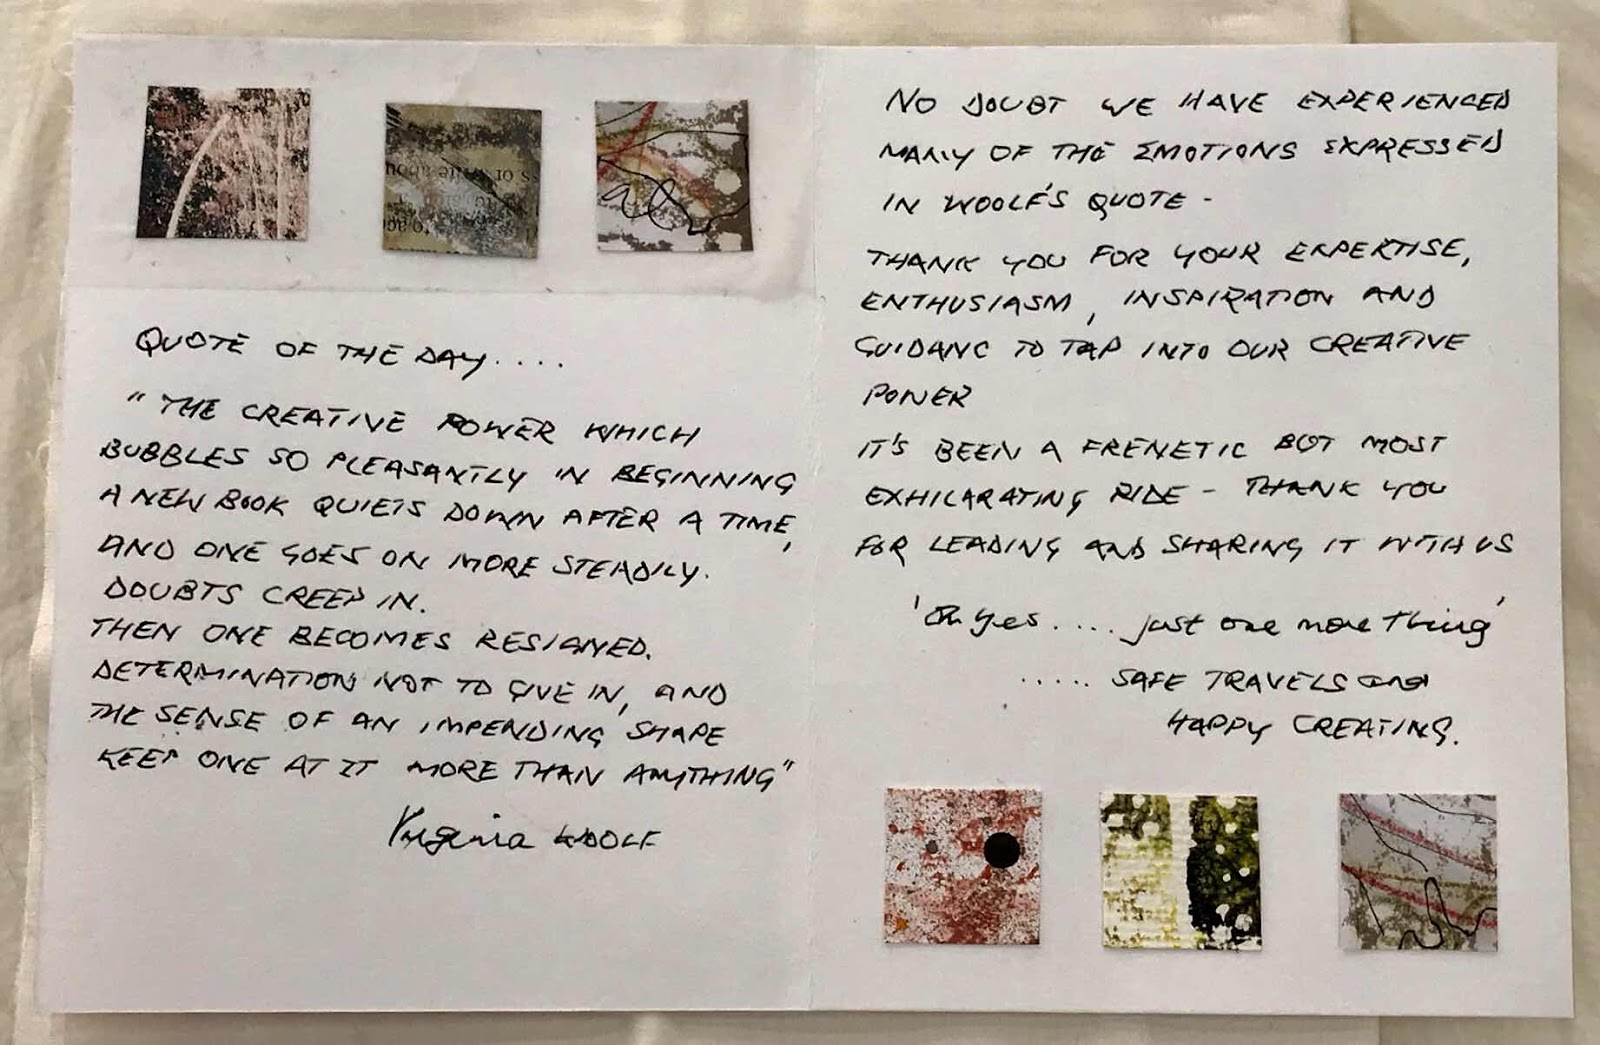 QUOTE OF THE DAY.....
"THE CREATIVE POWER WHICH
BUBBLES SO PLEASANTLY IN BEGINNING
A NEW BOOK QUIETS DOWN AFTER A TIME,
AND ONE GOES ON MORE STEADILY.
DOUBTS CREEP IN.
THEN ONE BECOMES RESIGNED.
DETERMINATION NOT TO GIVE IN, AND
THE SENSE OF AN IMPENDING SHAPE
KEEP ONE AT IT MORE THAN ANYTHING"
Virginia WOOLF
NO DOUBT WE HAVE EXPERIENCED
MANY OF THE EMOTIONS EXPRESSED
IN WOOLF'S QUOTE -
THANK YOU FOR YOUR EXPERTISE,
ENTHUSIASM, INSPIRATION AND
GUIDANC TO TAP INTO OUR CREATIVE
POWER
IT'S BEEN A FRENETIC BUT MOST
EXHILARATING RIDE - THANK YOU
FOR LEADING AND SHARING IT WITH US
'Oh yes.... just one more thing'
..... SAFE TRAVELS and
HAPPY CREATING.